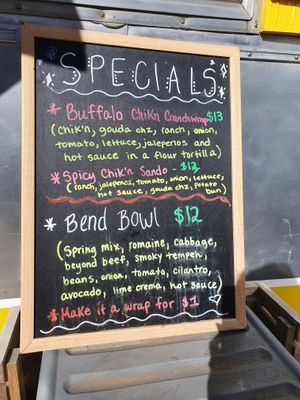 SPECIALS
* Buffalo Chikn Crunchwrap $13
(chik'n, gouda chz, ranch, onion,
tomato, lettuce, jalepeños and
hot sauce in a flour tortilla)
* Spicy Chik'n Sando - $12
(ranch, jalepeños, tomato, onion, lettuce,
hot sauce, gouda chz, potato
bun)
* Bend Bowl $12
(Spring mix, romaine, cabbage,
beyond beef, smoky tempeh,
beans, onion, tomato, cilantro,
avocado, lime crema, hot sauce)
* Make it a wrap for $1